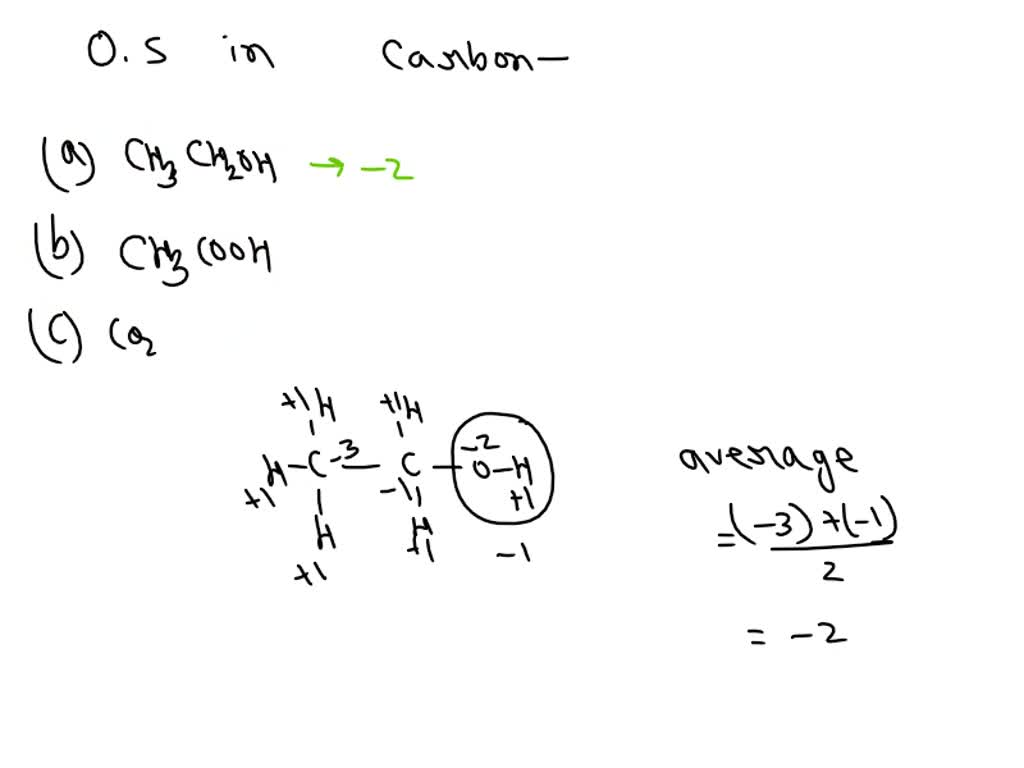 O.S in Carbon—
(a) CH3CH2OH → -2
(b) CH3COOH
(c) CO2
+1 H +1 H
H-C -3 — C — -2 O-H
+1 -1 +1
H H
+1 +1 -1
average
= (-3)+(-1)
2
= -2